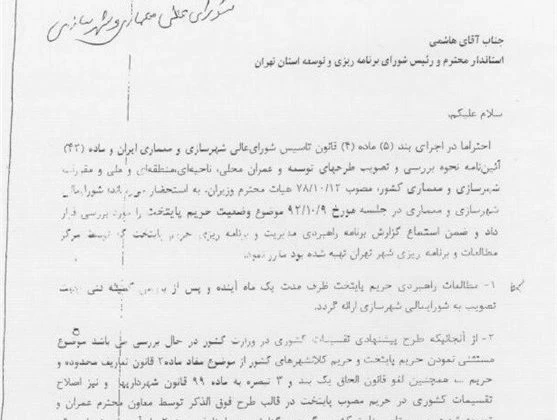 شورای عالی معماری و شهرسازی
جناب آقای هاشمی
استاندار محترم و رئیس شورای برنامه ریزی و توسعه استان تهران
سلام علیکم.
احتراما در اجرای بند (۵) ماده (۴) قانون تاسیس شورای‌عالی شهرسازی و معماری ایران و ماده (۴۲)
آئین‌نامه نحوه بررسی و تصویب طرحهای توسعه و عمران محلی، ناحیه‌ای،منطقه‌ای و ملی و مقررات
شهرسازی و معماری کشور، مصوب ۷۸/۱۰/۱۲ هیات محترم وزیران، به استحضار می‌رساند: شورا‌یعالی
شهرسازی و معماری در جلسه مورخ ۹۲/۱۰/۹ موضوع وضعیت حریم پایتخت را مورد بررسی قرار
داد و ضمن استماع گزارش برنامه راهبردی مدیریت و برنامه ریزی حریم پایتخت که توسط مرکز
مطالعات و برنامه ریزی شهر تهران تهیه شده بود مقرر نمود:
۱- مطالعات راهبردی حریم پایتخت ظرف مدت یک ماه آینده و پس از بررسی کمیته فنی جهت
تصویب به شورایعالی شهرسازی ارائه گردد.
۲- از آنجائیکه طرح پیشنهادی تقسیمات کشوری در وزارت کشور در حال بررسی می باشد موضوع
مستثنی نمودن حریم پایتخت و حریم کلانشهرهای کشور از موضوع مفاد ماده۲ قانون تعاریف محدوده و
حریم و همچنین لغو قانون الحاق یک بند و ۳ تبصره به ماده ۹۹ قانون شهرداریها و نیز اصلاح
تقسیمات کشوری در حریم مصوب پایتخت در قالب طرح فوق الذکر توسط معاون محترم عمران و